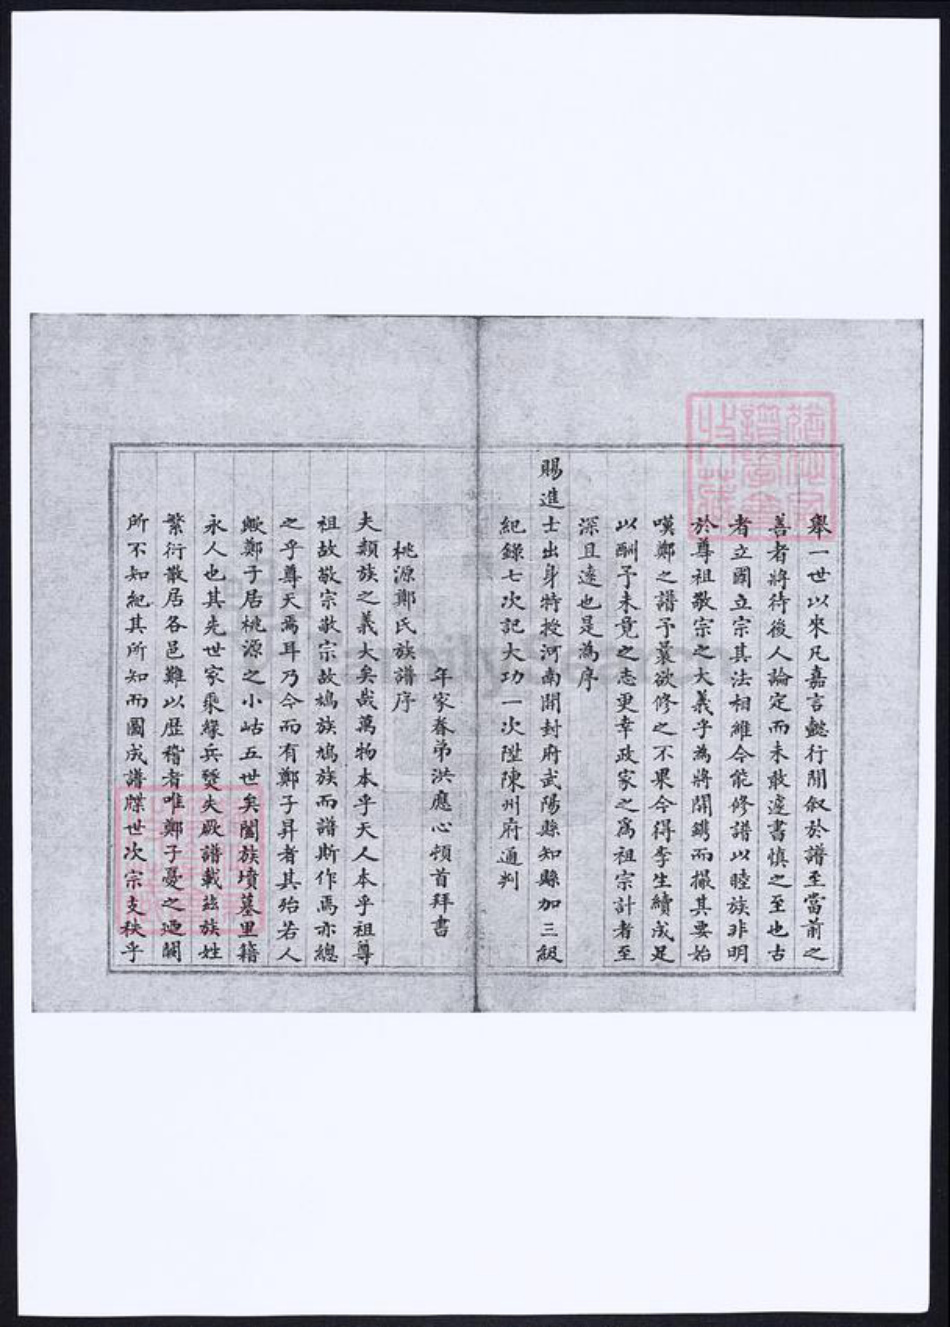 舉一世以來凡嘉言懿行間叙於譜至當前之
善者將待後人論定而未敢遽書慎之至也古
者立國立宗其法相維今能修譜以睦族非明
於尊祖敬宗之大義乎為將開鐫而撮其要始
嘆鄭之譜予曩欲修之不果今得李生續成是
以酬予未竟之志更幸政家之為祖宗計者至
深且遠也是為序
賜進士出身特授河南開封府武陽縣知縣加三級
紀錄七次記大功一次陞陳州府通判
年家眷弟洪應心頓首拜書
桃源鄭氏族譜序
夫類族之義大矣哉萬物本乎天人本乎祖尊
祖故敬宗敬宗故鳩族鳩族而譜斯作焉亦總
之乎尊天焉耳乃今而有鄭子昇者其殆若人
歟鄭子居桃源之小岵五世矣闔族墳墓里籍
永人也其先世家乘緣兵燹失厥譜載茲族姓
繁衍散居各邑難以歷稽者唯鄭子憂之迺闕
所不知紀其所知而圖成譜牒世次宗支秩乎